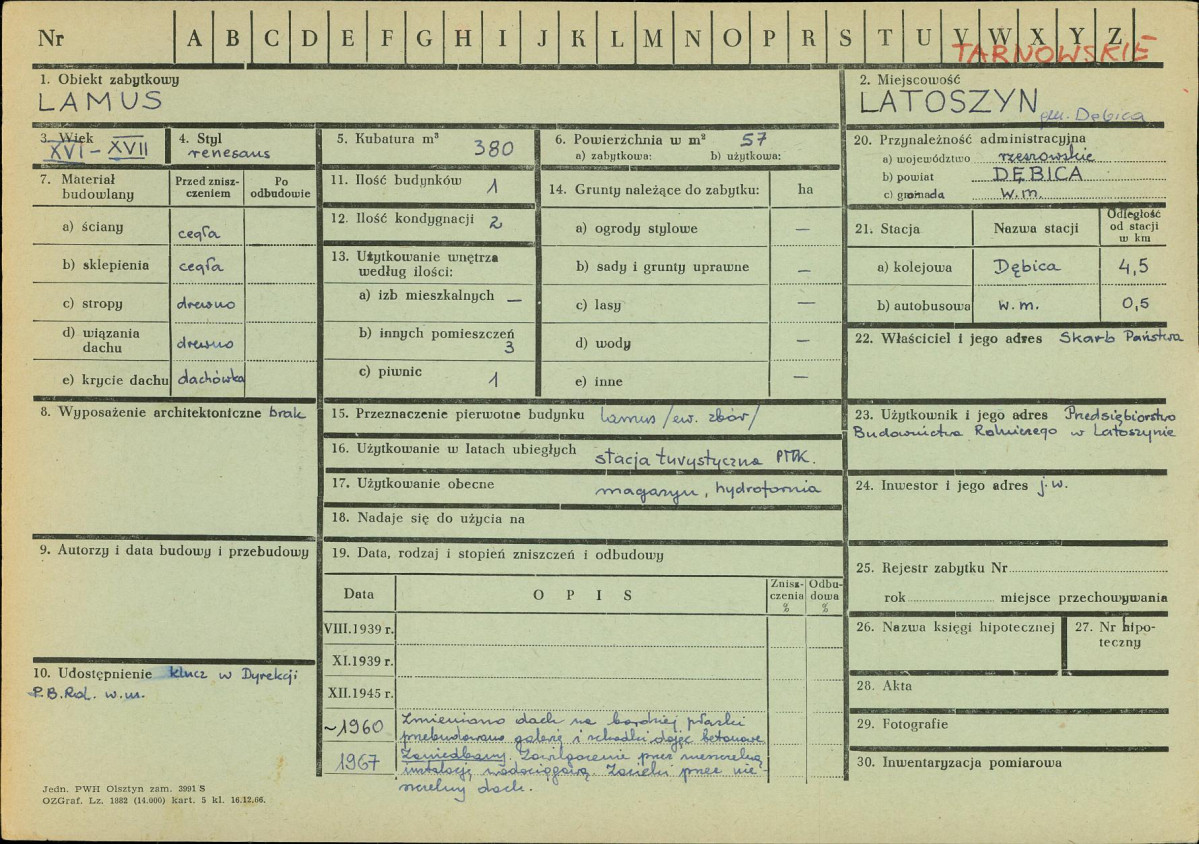 Nr A B C D E F G H I J K L M N O P R S T U V W X Y Z
TARNOWSKIE
1. Obiekt zabytkowy
LAMUS
2. Miejscowość
LATOSZYN
gm. Dębica
3. Wiek
XVI - XVII
4. Styl
renesans
5. Kubatura m³ 380
6. Powierzchnia w m² 57
a) zabytkowa: b) użytkowa:
7. Materiał budowlany
Przed znisz-
czeniem
Po
odbudowie
a) ściany cegła
b) sklepienia cegła
c) stropy drewno
d) wiązania
dachu drewno
e) krycie dachu dachówka
8. Wyposażenie architektoniczne brak
9. Autorzy i data budowy i przebudowy
10. Udostępnienie klucz w Dyrekcji
P.B.Rol. w.m.
11. Ilość budynków 1
12. Ilość kondygnacji 2
13. Użytkowanie wnętrza
według ilości:
a) izb mieszkalnych —
b) innych pomieszczeń
3
c) piwnic 1
14. Grunty należące do zabytku: ha
a) ogrody stylowe —
b) sady i grunty uprawne —
c) lasy —
d) wody —
e) inne —
15. Przeznaczenie pierwotne budynku lamus /ew. zbór/
16. Użytkowanie w latach ubiegłych stacja turystyczna PTTK.
17. Użytkowanie obecne magazyn, hydrofornia
18. Nadaje się do użycia na
19. Data, rodzaj i stopień zniszczeń i odbudowy
Data OPIS
Znisz-
czenia
%
Odbu-
dowa
%
VIII.1939 r.
XI.1939 r.
XII.1945 r.
~1960 Zmieniono dach na bardziej płaski
przebudowano galerię i schodki dając betonowe
1967 Zaniedbany. Zawilgocenie przez nieszczelną
instalację wodociągową. Zacieki przez nie-
szczelny dach.
20. Przynależność administracyjna
a) województwo rzeszowskie
b) powiat DĘBICA
c) gromada w.m.
21. Stacja Nazwa stacji
Odległość
od stacji
w km
a) kolejowa Dębica 4,5
b) autobusowa w.m. 0,5
22. Właściciel i jego adres Skarb Państwa
23. Użytkownik i jego adres Przedsiębiorstwo
Budownictwa Rolniczego w Latoszynie
24. Inwestor i jego adres j.w.
25. Rejestr zabytku Nr
rok miejsce przechowywania
26. Nazwa księgi hipotecznej
27. Nr hipo-
teczny
28. Akta
29. Fotografie
30. Inwentaryzacja pomiarowa
Jedn. PWH Olsztyn zam. 3991 S
OZGraf. Lz. 1882 (14.000) kart. 5 kl. 16.12.66.